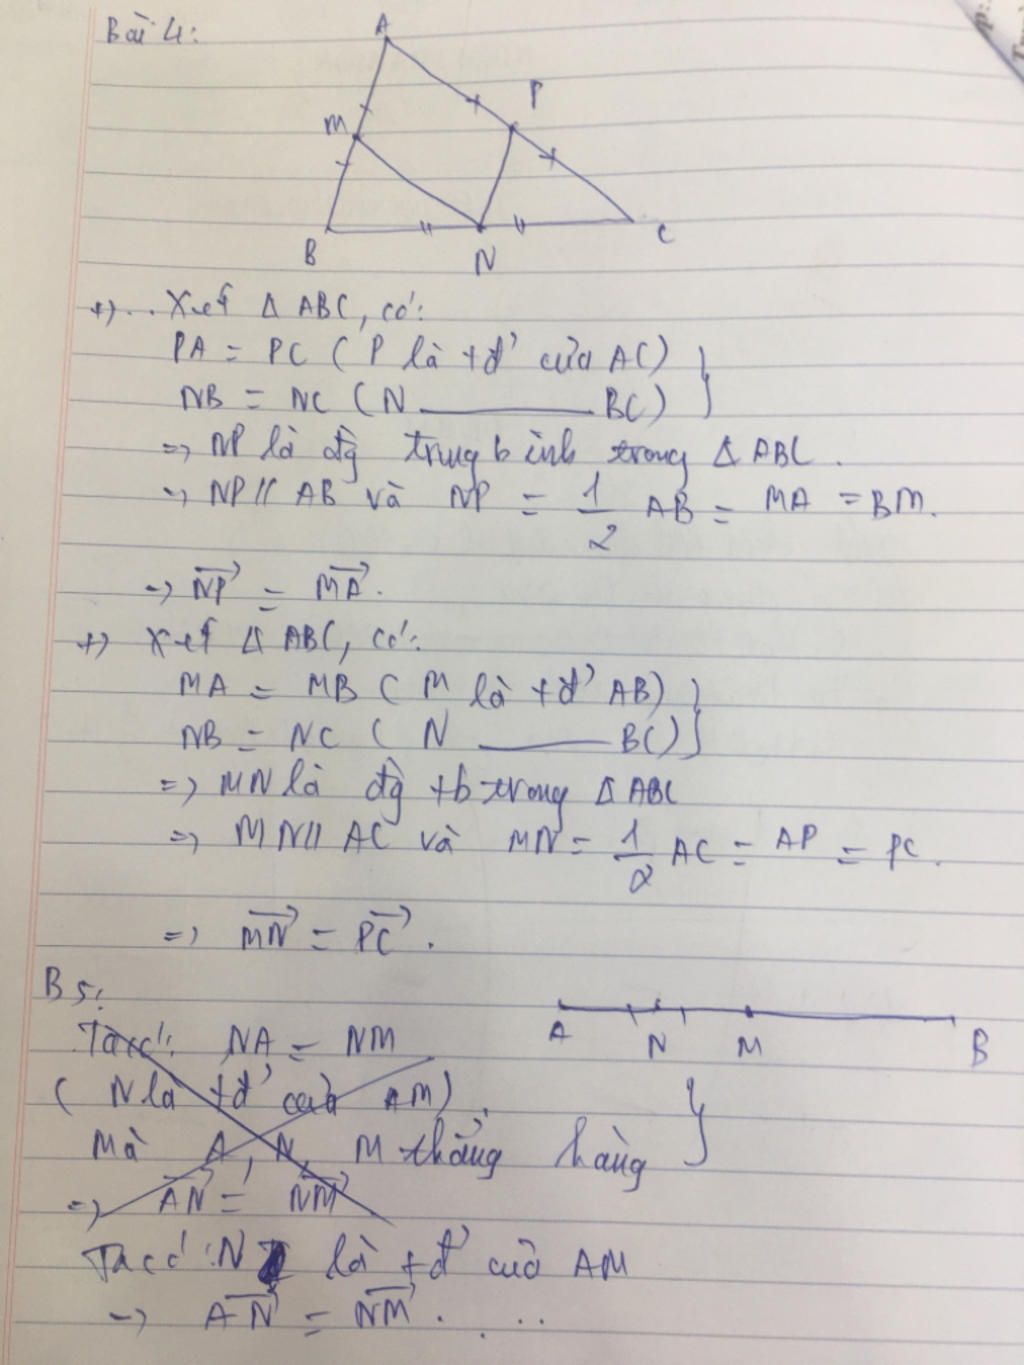 Bài 4:
A
M
P
B
N
C
+) .. Xét Δ ABC, có:
PA = PC ( P là tđ' của AC) }
NB = NC ( N ——— BC) }
=> NP là đg trung bình trong Δ ABC.
=> NP // AB và NP = 1/2 AB = MA = BM.
=> \overrightarrow{NP} = \overrightarrow{MA}.
+) Xét Δ ABC, có:
MA = MB ( M là tđ' AB) }
NB = NC ( N ——— BC) }
=> MN là đg tb trong Δ ABC
=> MN // AC và MN = 1/2 AC = AP = PC.
=> \overrightarrow{MN} = \overrightarrow{PC}.
B5:
A N M B
Ta có: NA = NM
( N là tđ' của AM)
Mà A, N, M thẳng hàng }
=> \overrightarrow{AN} = \overrightarrow{NM}
Ta có: N là tđ' của AM
=> \overrightarrow{AN} = \overrightarrow{NM}. . ..